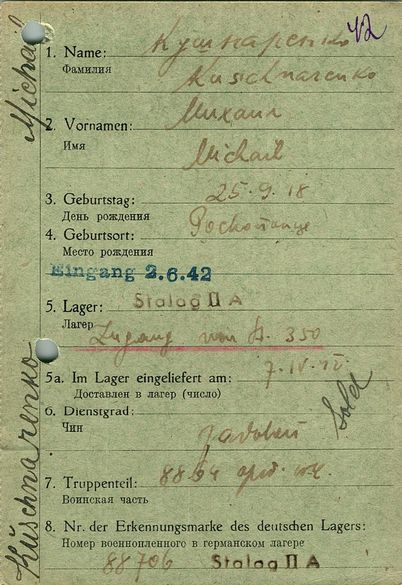 42
1. Name: Кушнаренко
Фамилия Kuschnarenko
2. Vornamen: Михаил
Имя
Michail
3. Geburtstag: 25.9.18
День рождения
4. Geburtsort:
Место рождения
Eingang 2.6.42
5. Lager: Stalag II A
Лагерь
Zugang von St. 350
5a. Im Lager eingeliefert am: 7.IV.42
Доставлен в лагерь (число)
6. Dienstgrad:
Чин
Sold
7. Truppenteil:
Воинская часть
8. Nr. der Erkennungsmarke des deutschen Lagers:
Номер военнопленного в германском лагере
88706 Stalag II A
Kuschnarenko
Michail